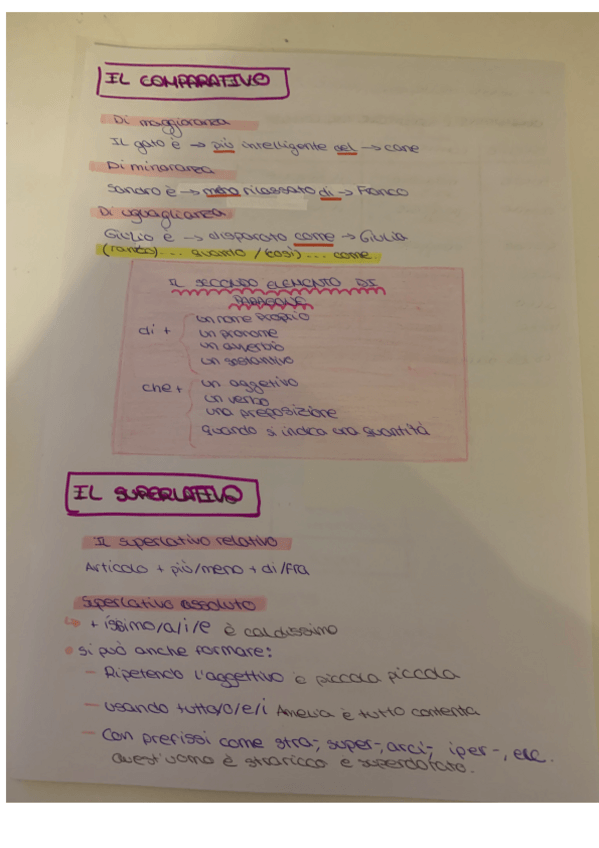 IL COMPARATIVO
Di maggioranza
IL gato è → più intelligente del → cane
Di minoranza
Sandro è → meno rilassato di → Franco
Di uguaglianza
Giulio è → disparato come → Giulia
(tanto)... quanto / (così)... come.
IL SECONDO ELEMENTO DI
PARAGONE
di +
un nome proprio
un pronome
un avverbio
un sostantivo
che +
un aggetivo
un verbo
una preposizione
quando si indica una quantità
IL SUPERLATIVO
Il superlativo relativo
Articolo + più/meno + di/fra
Superlativo assoluto
+ íssimo/a/i/e è caldissimo
si può anche formare:
- Ripetendo l'aggettivo è piccola piccola
- usando tutta/o/e/i Amelia è tutto contenta
- Con prefissi come stra-, super-, arci-, iper-, etc.
Quest'uomo è straricco e superdotato.